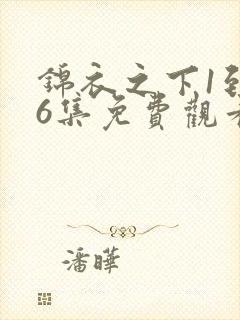 錦衣之下1到
6集免費觀看
潘曄